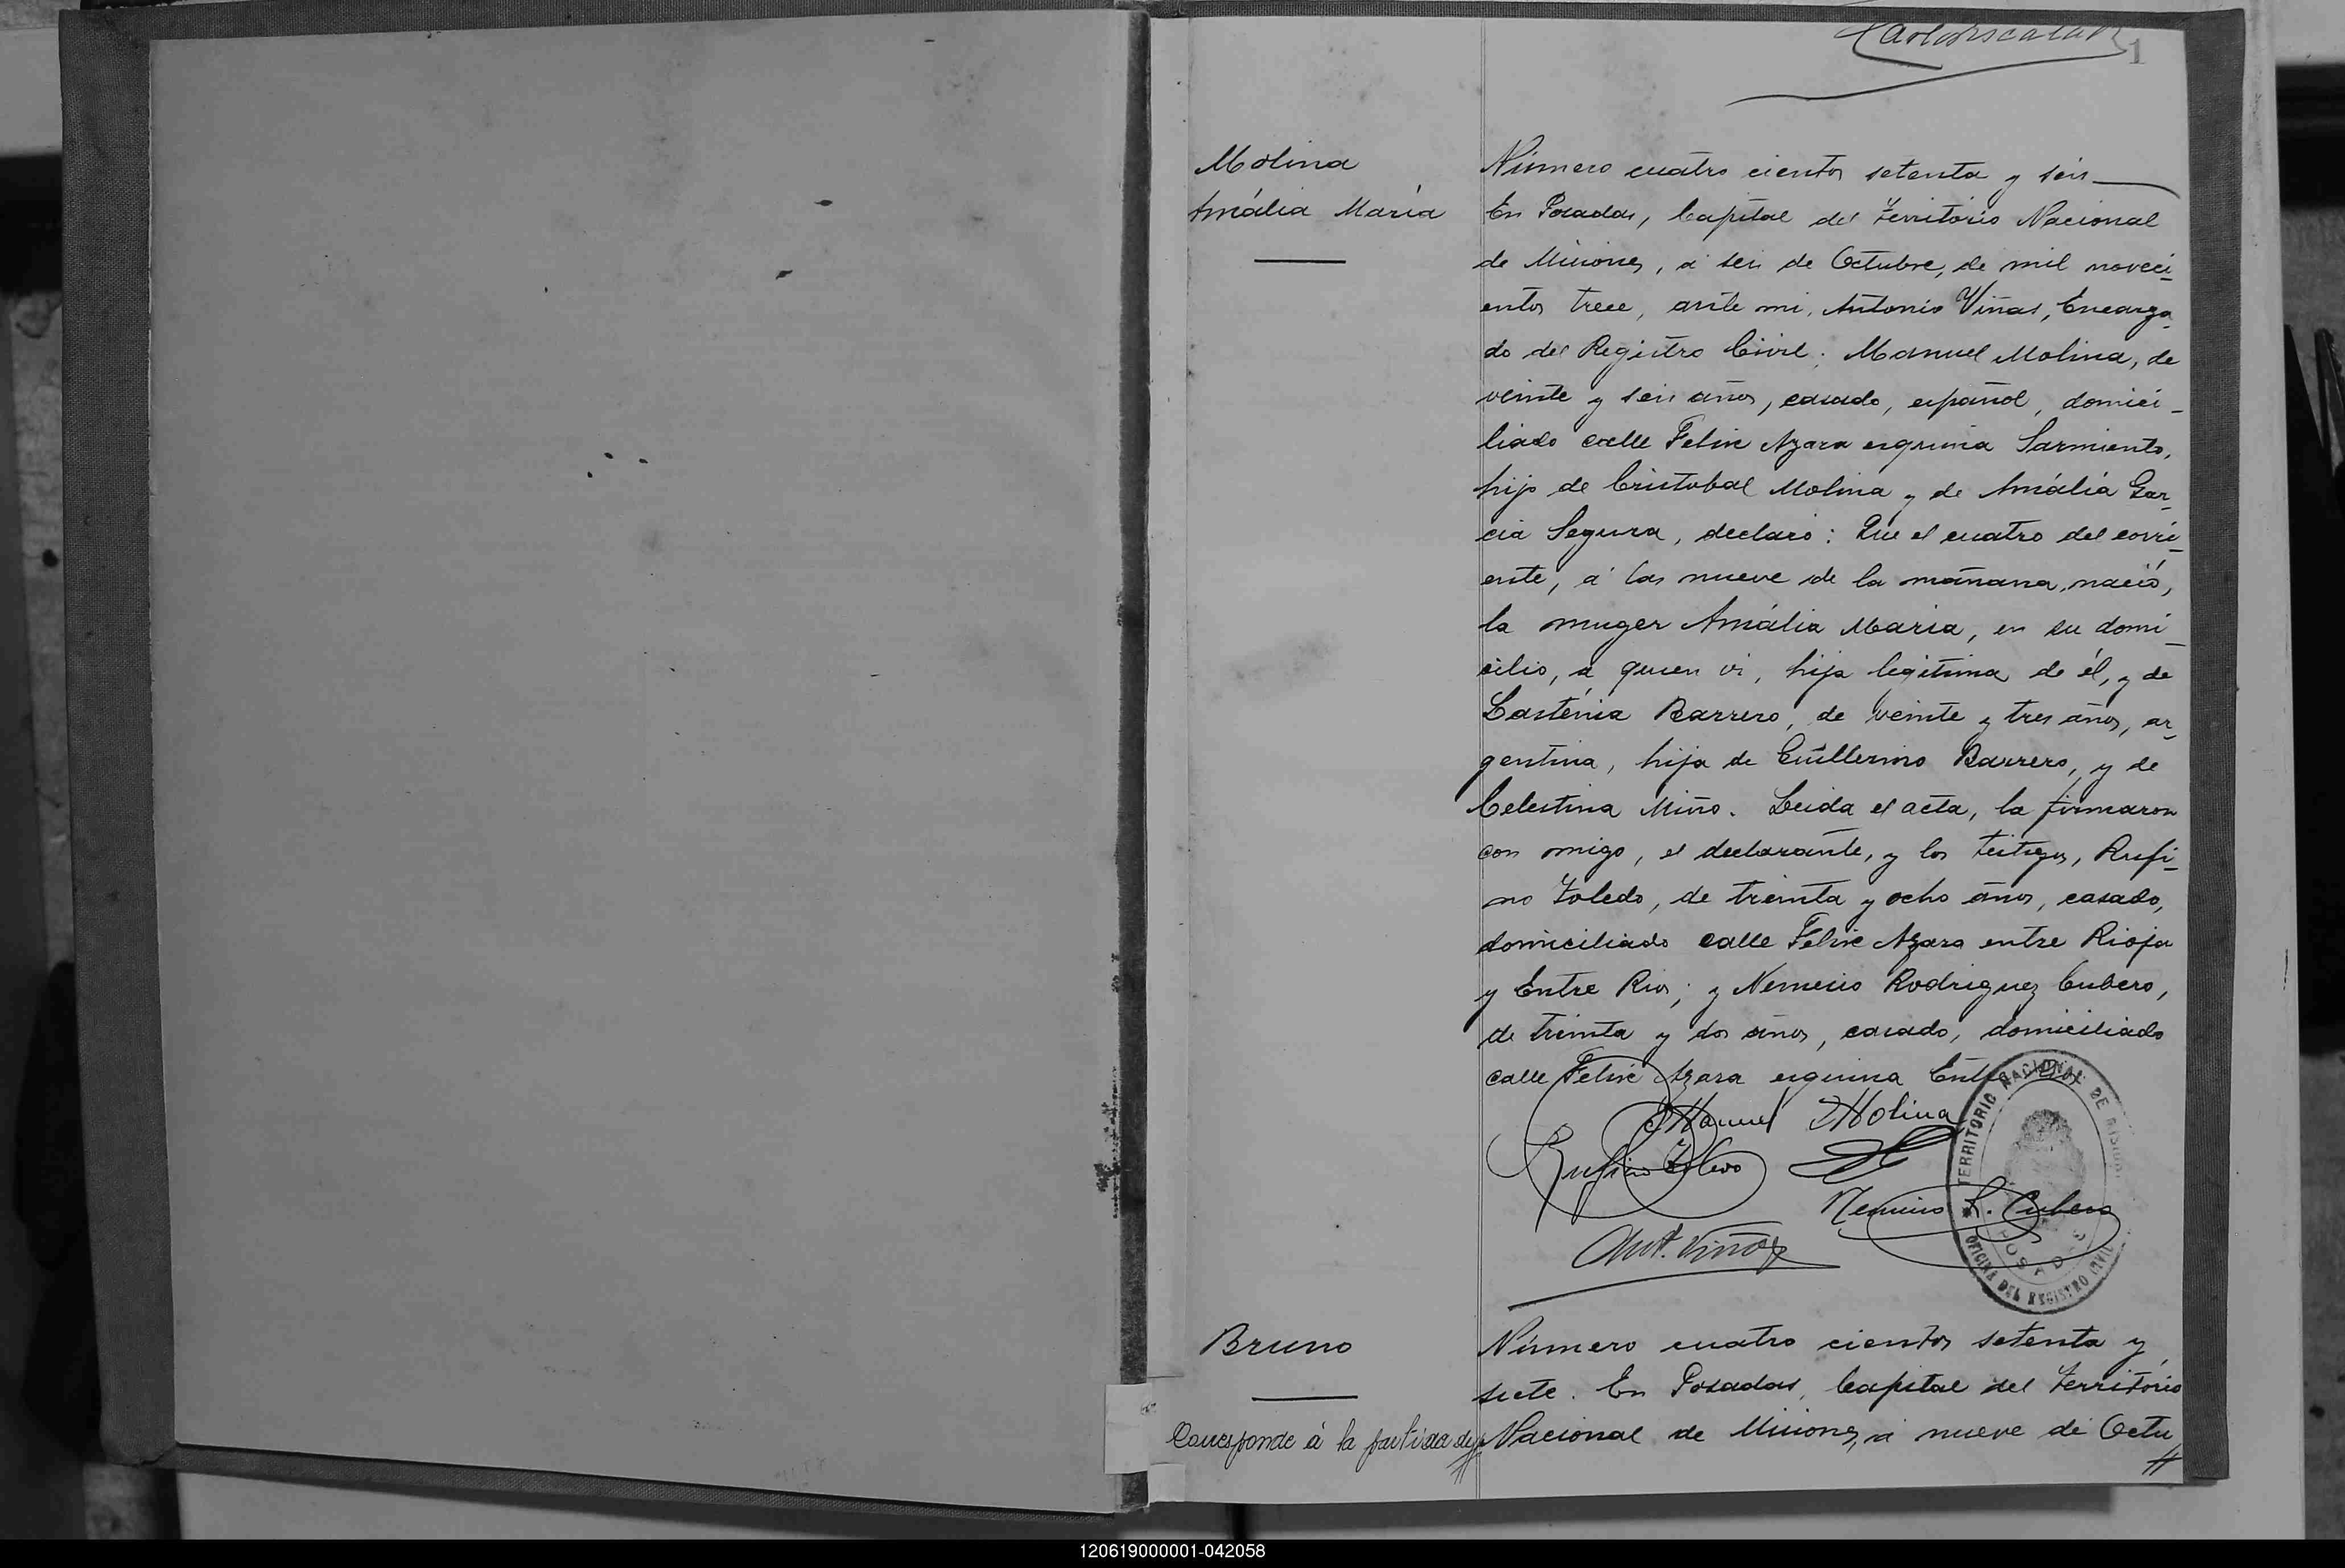 1
Molina
Amália María
Número cuatro cientos setenta y seis
En Posadas, Capital del Territorio Nacional
de Misiones, á seis de Octubre, de mil noveci-
entos trece, ante mi, Antonio Viñas, Encarga-
do del Registro Civil: Manuel Molina, de
veinte y seis años, casado, español, domici-
liado calle Felix Azara esquina Sarmiento,
hijo de Cristobal Molina y de Amália Gar-
cia Segura, declaró: Que el cuatro del corri-
ente, á las nueve de la mañana, nació,
la muger Amália Maria, en su domi-
cilio, a quien vi, hija legitima de él, y de
Lasténia Barrero, de veinte y tres años, ar-
gentina, hija de Guillermo Barrero, y de
Celestina Miño. Leida el acta, la firmaron
con migo, el declarante, y los testigos, Rufi-
no Toledo, de treinta y ocho años, casado,
domiciliado calle Felix Azara entre Rioja
y Entre Rios; y Nemecio Rodriguez Cubero,
de treinta y dos años, casado, domiciliado
calle Felix Azara esquina Entre
Manuel Molina
Rufino Toledo
Nemecio R. Cubero
Ant. Viñas
TERRITORIO NACIONAL DE MISIONES
POSADAS
OFICINA DEL REGISTRO CIVIL
Bruno
Corresponde á la partida de
Número cuatro cientos setenta y
siete. En Posadas, Capital del Territorio
Nacional de Misiones, á nueve de Octu
120619000001-042058